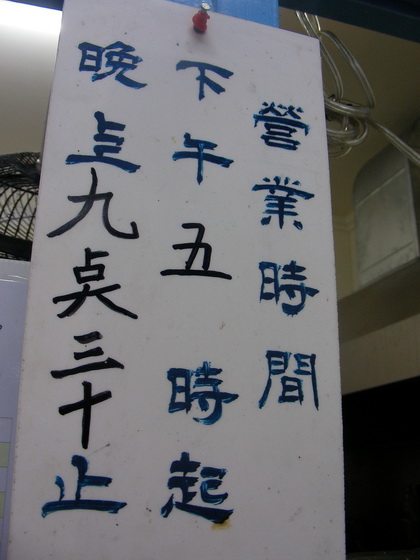 營業時間
下午五時起
晚上九点三十止